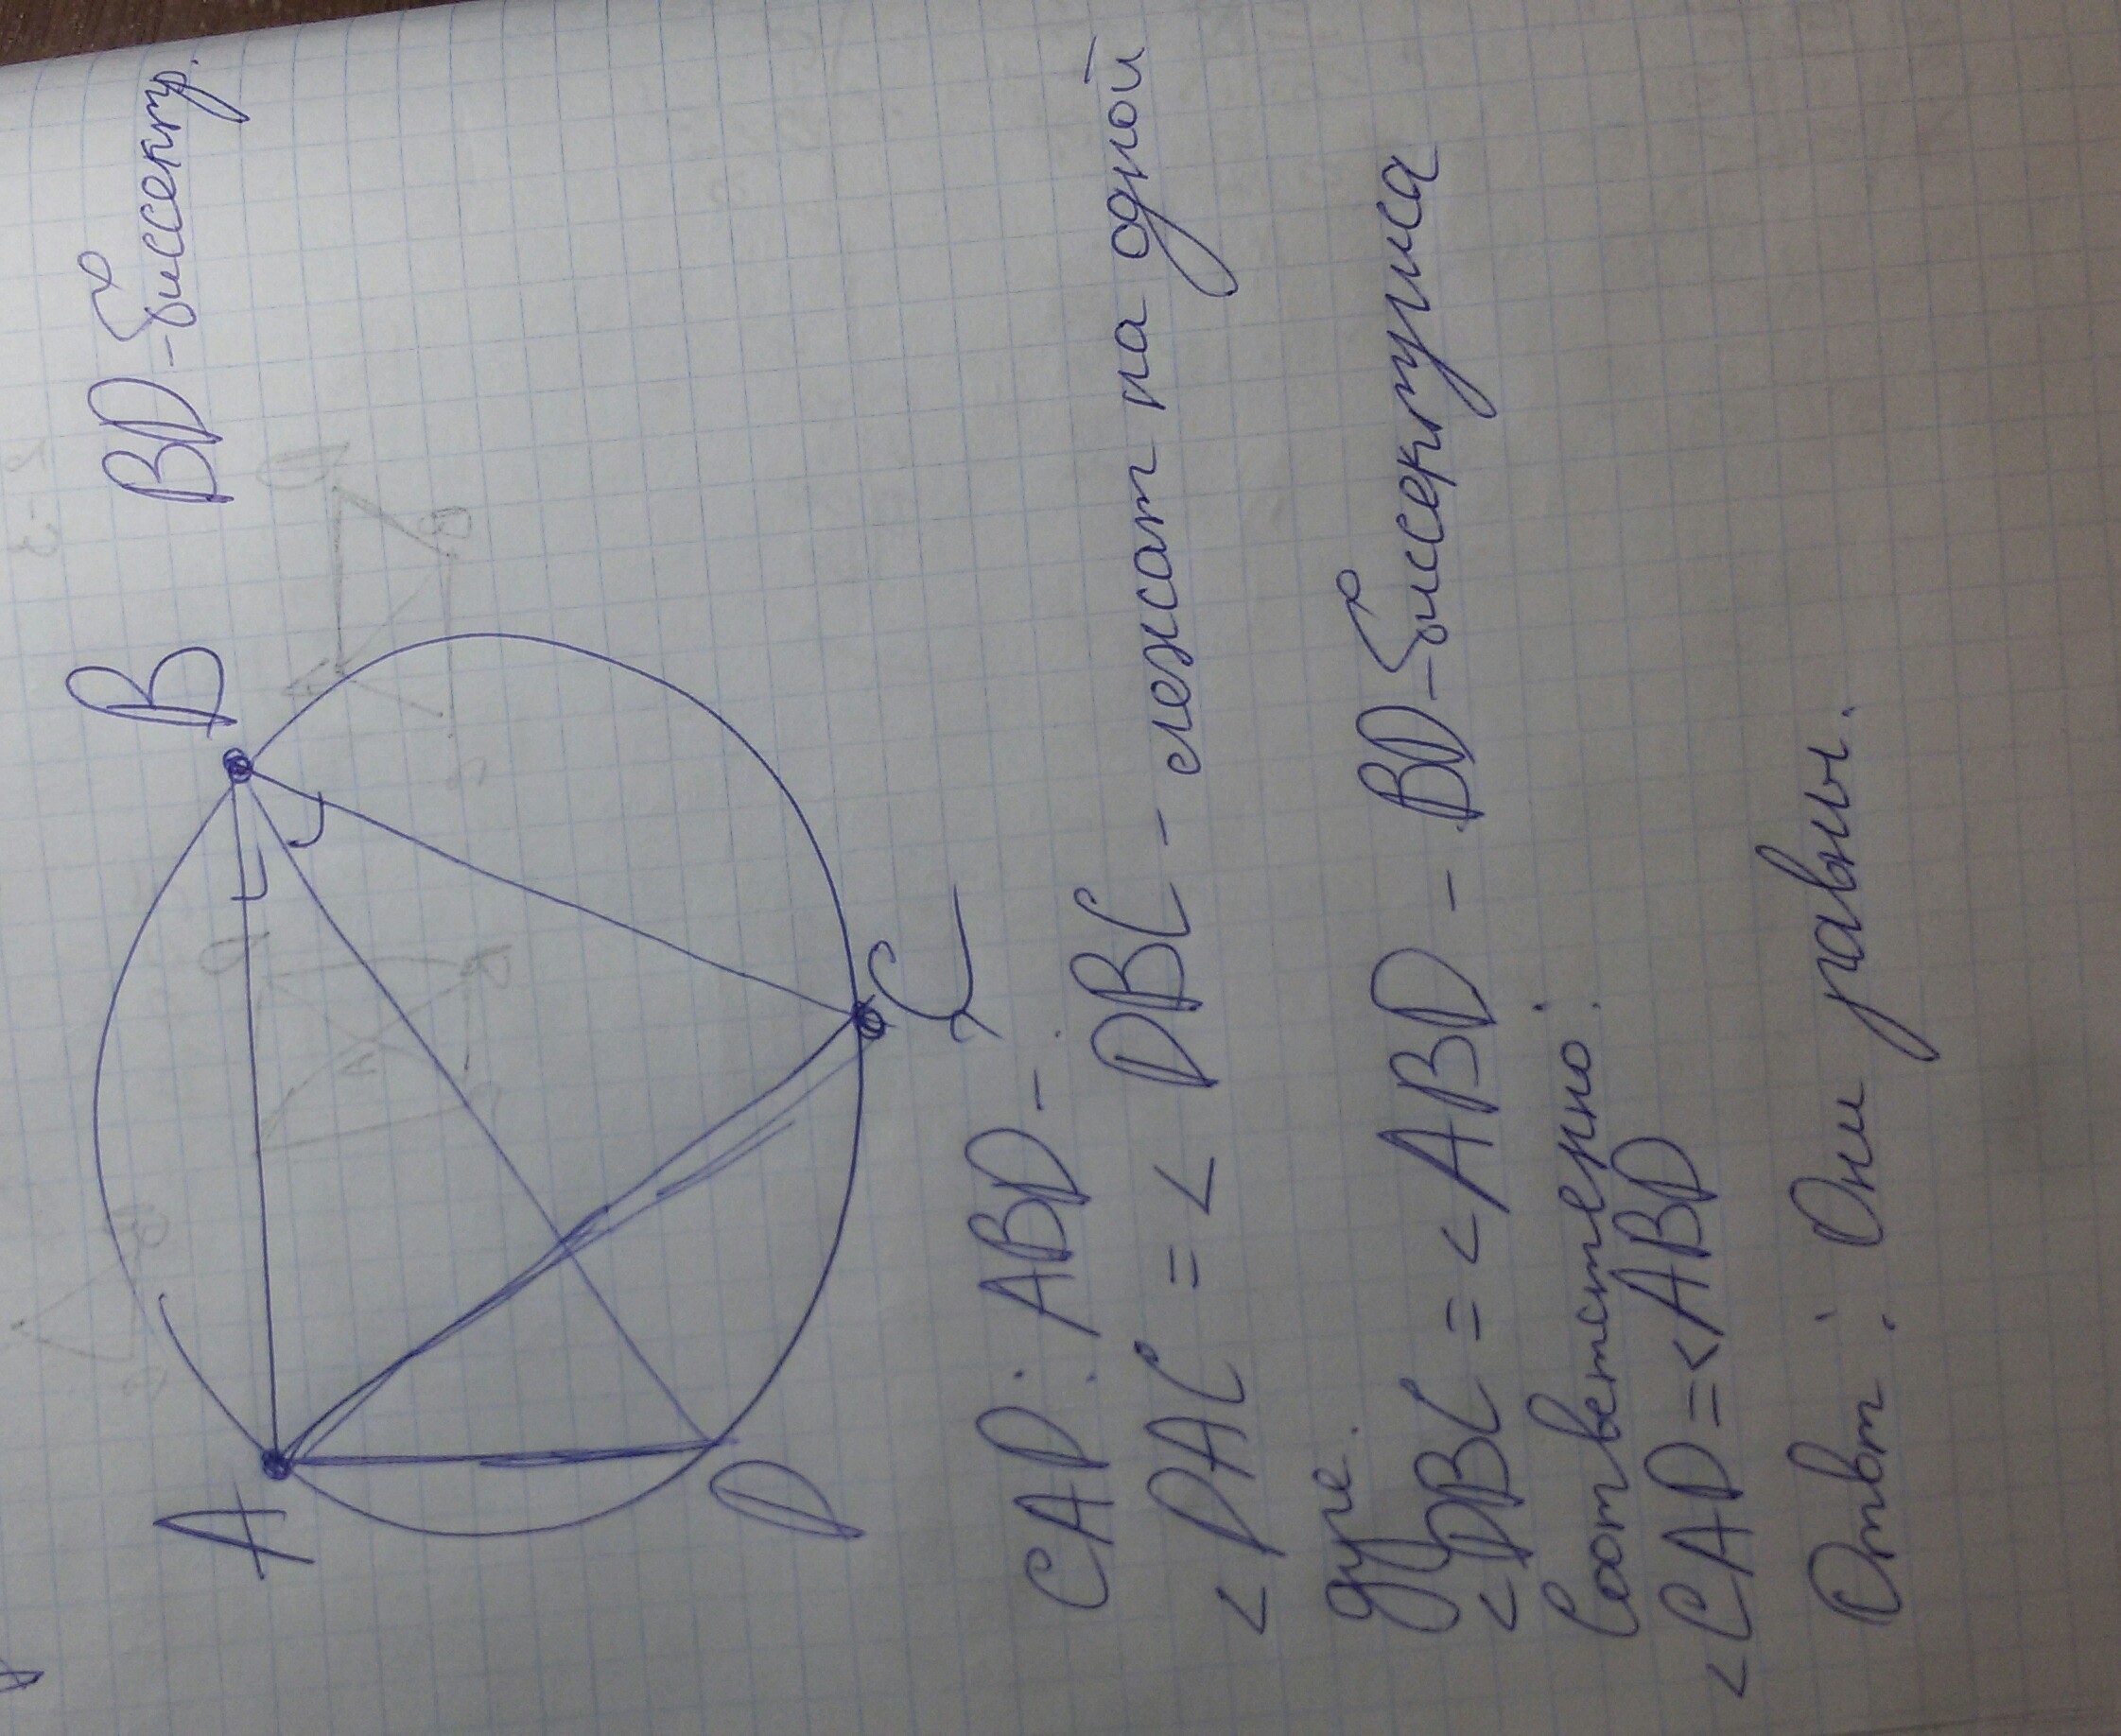 BD-биссектр.
B
A
C
D
CAD : ABD -
< DAC = < DBC - лежат на одной
дуге.
< DBC = < ABD - BD-биссектриса
Соответственно:
< CAD = < ABD
Ответ: Они равны.